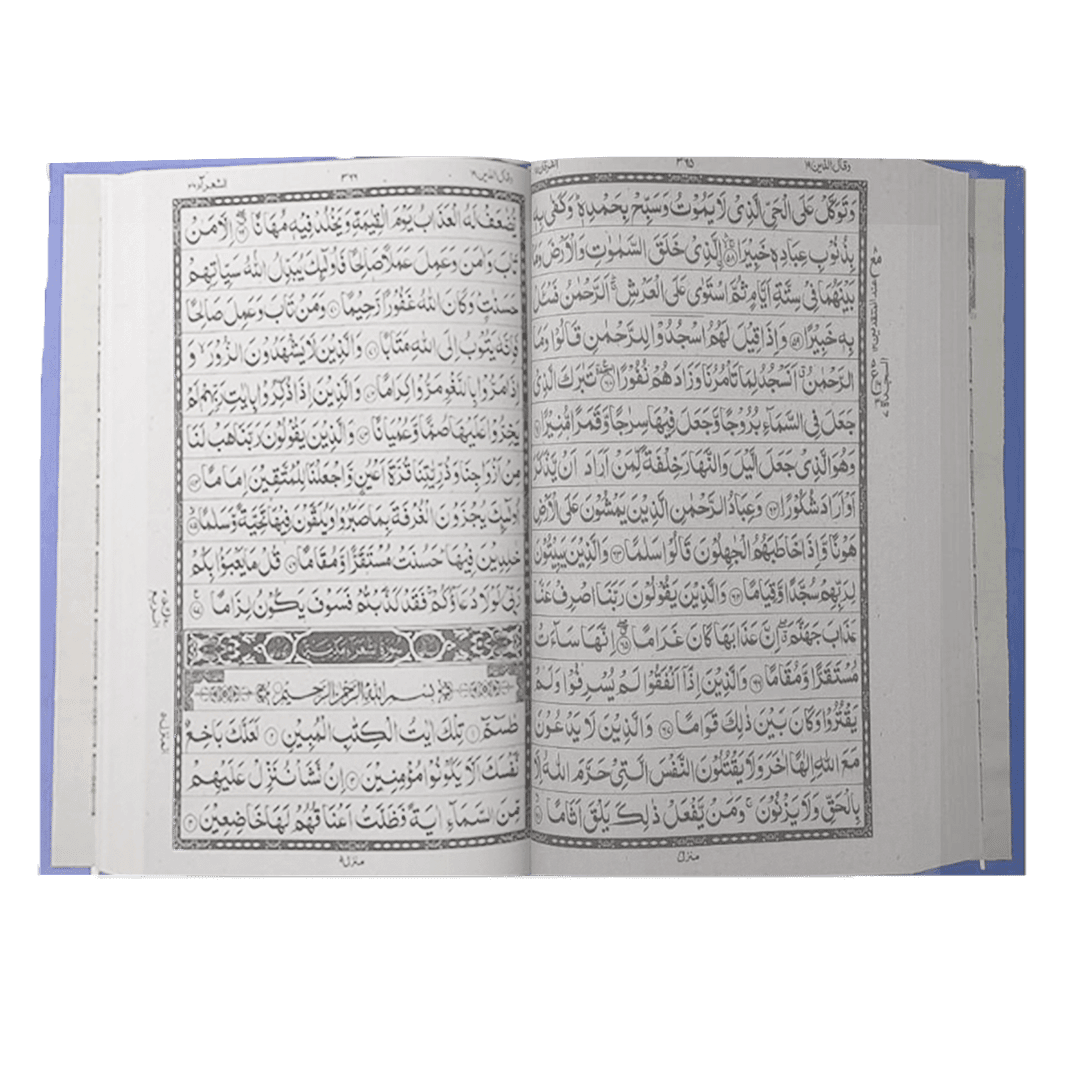 وقال الذين ١٩
وَتَوَكَّلْ عَلَى الْحَيِّ الَّذِيْ لَا يَمُوْتُ وَسَبِّحْ بِحَمْدِهٖ ؕ وَكَفٰى بِهٖ
بِذُنُوْبِ عِبَادِهٖ خَبِيْرَا ﴿۵۸﴾ الَّذِيْ خَلَقَ السَّمٰوٰتِ وَالْاَرْضَ وَمَا
بَيْنَهُمَا فِيْ سِتَّةِ اَيَّامٍ ثُمَّ اسْتَوٰى عَلَى الْعَرْشِ ۛۚ اَلرَّحْمٰنُ فَسْـَٔلْ
بِهٖ خَبِيْرًا ﴿۵۹﴾ وَاِذَا قِيْلَ لَهُمُ اسْجُدُوْا لِلرَّحْمٰنِ قَالُوْا وَمَا
الرَّحْمٰنُ ۗ اَنَسْجُدُ لِمَا تَاْمُرُنَا وَزَادَهُمْ نُفُوْرًا ﴿۶۰﴾ تَبٰرَكَ الَّذِيْ
جَعَلَ فِي السَّمَآءِ بُرُوْجًا وَّجَعَلَ فِيْهَا سِرٰجًا وَّقَمَرًا مُّنِيْرًا ﴿۶۱﴾
وَهُوَ الَّذِيْ جَعَلَ الَّيْلَ وَالنَّهَارَ خِلْفَةً لِّمَنْ اَرَادَ اَنْ يَّذَّكَّرَ
اَوْ اَرَادَ شُكُوْرًا ﴿۶۲﴾ وَعِبَادُ الرَّحْمٰنِ الَّذِيْنَ يَمْشُوْنَ عَلَى الْاَرْضِ
هَوْنًا وَّاِذَا خَاطَبَهُمُ الْجٰهِلُوْنَ قَالُوْا سَلٰمًا ﴿۶۳﴾ وَالَّذِيْنَ يَبِيْتُوْنَ
لِرَبِّهِمْ سُجَّدًا وَّقِيَامًا ﴿۶۴﴾ وَالَّذِيْنَ يَقُوْلُوْنَ رَبَّنَا اصْرِفْ عَنَّا
عَذَابَ جَهَنَّمَ ۖ اِنَّ عَذَابَهَا كَانَ غَرَامًا ﴿۶۵﴾ اِنَّهَا سَآءَتْ
مُسْتَقَرًّا وَّمُقَامًا ﴿۶۶﴾ وَالَّذِيْنَ اِذَآ اَنْفَقُوْا لَمْ يُسْرِفُوْا وَلَمْ
يَقْتُرُوْا وَكَانَ بَيْنَ ذٰلِكَ قَوَامًا ﴿۶۷﴾ وَالَّذِيْنَ لَا يَدْعُوْنَ
مَعَ اللّٰهِ اِلٰهًا اٰخَرَ وَلَا يَقْتُلُوْنَ النَّفْسَ الَّتِيْ حَرَّمَ اللّٰهُ اِلَّا
بِالْحَقِّ وَلَا يَزْنُوْنَ ۚ وَمَنْ يَّفْعَلْ ذٰلِكَ يَلْقَ اَثَامًا ﴿۶۸﴾
وقال الذين ١٩ الشعرآء ٢٦
يُّضٰعَفْ لَهُ الْعَذَابُ يَوْمَ الْقِيٰمَةِ وَيَخْلُدْ فِيْهٖ مُهَانًا ﴿۶۹﴾ اِلَّا مَنْ
تَابَ وَاٰمَنَ وَعَمِلَ عَمَلًا صَالِحًا فَاُولٰٓئِكَ يُبَدِّلُ اللّٰهُ سَيِّاٰتِهِمْ
حَسَنٰتٍ ؕ وَكَانَ اللّٰهُ غَفُوْرًا رَّحِيْمًا ﴿۷۰﴾ وَمَنْ تَابَ وَعَمِلَ صَالِحًا
فَاِنَّهٗ يَتُوْبُ اِلَى اللّٰهِ مَتَابًا ﴿۷۱﴾ وَالَّذِيْنَ لَا يَشْهَدُوْنَ الزُّوْرَ ۙ وَ
اِذَا مَرُّوْا بِاللَّغْوِ مَرُّوْا كِرَامًا ﴿۷۲﴾ وَالَّذِيْنَ اِذَا ذُكِّرُوْا بِاٰيٰتِ رَبِّهِمْ لَمْ
يَخِرُّوْا عَلَيْهَا صُمًّا وَّعُمْيَانًا ﴿۷۳﴾ وَالَّذِيْنَ يَقُوْلُوْنَ رَبَّنَا هَبْ لَنَا
مِنْ اَزْوَاجِنَا وَذُرِّيّٰتِنَا قُرَّةَ اَعْيُنٍ وَّاجْعَلْنَا لِلْمُتَّقِيْنَ اِمَامًا ﴿۷۴﴾
اُولٰٓئِكَ يُجْزَوْنَ الْغُرْفَةَ بِمَا صَبَرُوْا وَيُلَقَّوْنَ فِيْهَا تَحِيَّةً وَّسَلٰمًا ﴿۷۵﴾
خٰلِدِيْنَ فِيْهَا ؕ حَسُنَتْ مُسْتَقَرًّا وَّمُقَامًا ﴿۷۶﴾ قُلْ مَا يَعْبَؤُا بِكُمْ
رَبِّيْ لَوْلَا دُعَآؤُكُمْ ۚ فَقَدْ كَذَّبْتُمْ فَسَوْفَ يَكُوْنُ لِزَامًا ﴿۷۷﴾
بِسْمِ اللّٰهِ الرَّحْمٰنِ الرَّحِيْمِ
طٰسٓمّٓ ﴿۱﴾ تِلْكَ اٰيٰتُ الْكِتٰبِ الْمُبِيْنِ ﴿۲﴾ لَعَلَّكَ بَاخِعٌ
نَّفْسَكَ اَلَّا يَكُوْنُوْا مُؤْمِنِيْنَ ﴿۳﴾ اِنْ نَّشَاْ نُنَزِّلْ عَلَيْهِمْ
مِّنَ السَّمَآءِ اٰيَةً فَظَلَّتْ اَعْنَاقُهُمْ لَهَا خٰضِعِيْنَ ﴿۴﴾